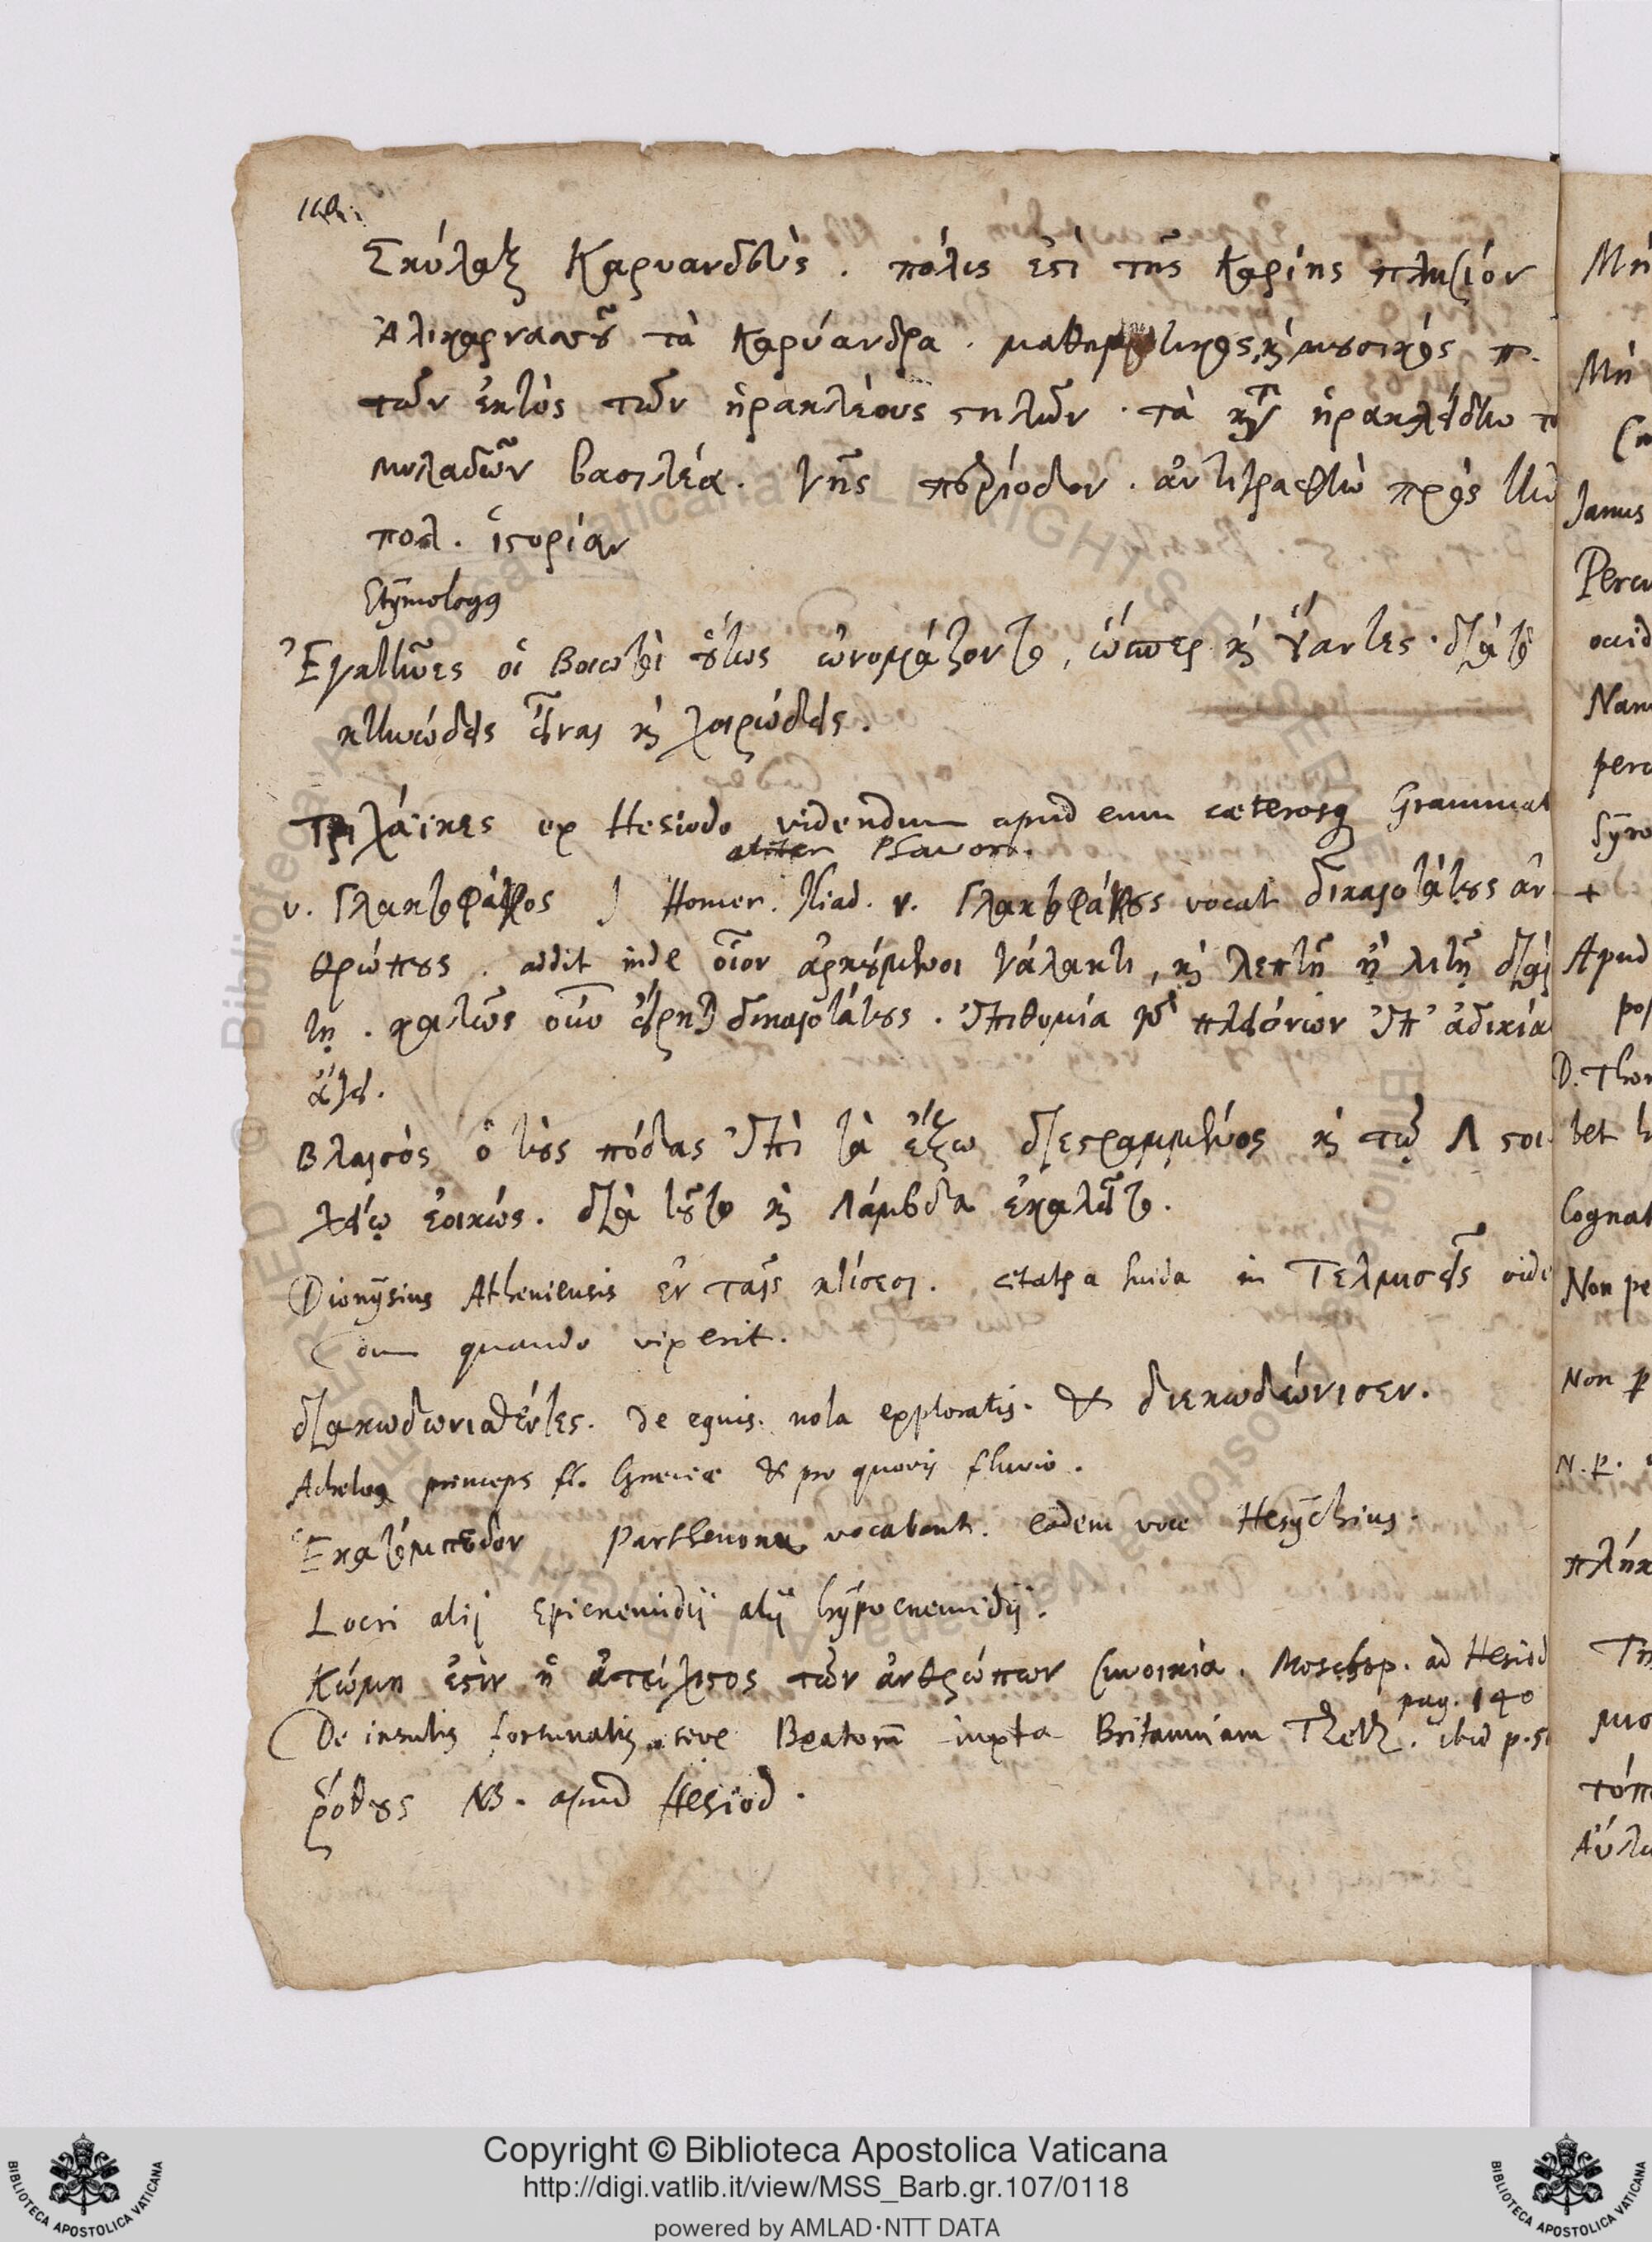 Σκύλαξ Καρυανδεύς. πόλις ἐστὶ τῆς Καρίης πλησίον
Ἁλικαρνασοῦ τὰ Καρύανδρα. μαθηματικὸς, καὶ μουσικός π.
τῶν ἐκτὸς τῶν ἡρακλέους στηλῶν. τὰ κατὰ ἡρακλείδην τ
μυλασῶν βασιλέα. γῆς περίοδον. ἀντιγραφὴν πρὸς τὴν
πολ. ἱστορίαν
Etymologus
Ἐγαλῆνες οἱ Βοιωτοὶ οὕτως ὠνομάζοντο, ὥσπερ καὶ Ὕαντες. διὰ τὸ
κτηνώδεις εἶναι καὶ χοιρώδεις.
Τριχάϊκες ex Hesiodo videndum apud eum caeterosq Grammat
Favor.
ν. Γλακτοφάγος Homer. Iliad. ν. Γλακτοφάγους vocat δικαιοτάτους ἀν
θρώπους. addit inde οἷον ἀρκούμενοι γάλακτι, καὶ λεπτῇ ἢ λιτῇ διαί
τῃ. καλῶς οὖν εἴρηται δικαιοτάτους. ἐπιθυμία γὰρ πλειόνων ἐπ' ἀδικία
ἄγει.
Βλαισὸς ὁ τοὺς πόδας ἐπὶ τὰ ἔξω διεστραμμένος καὶ τῷ Λ στοι
χείῳ ἐοικώς. διὰ τοῦτο καὶ Λάμβδα ἐκαλεῖτο.
Dionysius Atheniensis ἐν ταῖς κτίσεσι. citatus a Suida in Τελμισεῖς vide
dum quando vixerit.
διακωδωνισθέντες. de equis. nola exploratis. & διεκωδώνισεν.
Achelous princeps fl. Graeciae & pro quovis fluvio.
Ἑκατόμπεδον Parthenona vocabant. eadem voce Hesychius.
Locri alij Epicnemidij alij hypocnemidij.
Κώμη ἐστὶν ἡ ἀτείχιστος τῶν ἀνθρώπων συνοικία. Moschop. ad Hesiod
pag. 140
De insulis fortunatis sive Beatorum iuxta Britanniam Tzetz. ibid p. 5
ῥόθους NB. apud Hesiod.
Copyright © Biblioteca Apostolica Vaticana
http://digi.vatlib.it/view/MSS_Barb.gr.107/0118
powered by AMLAD·NTT DATA